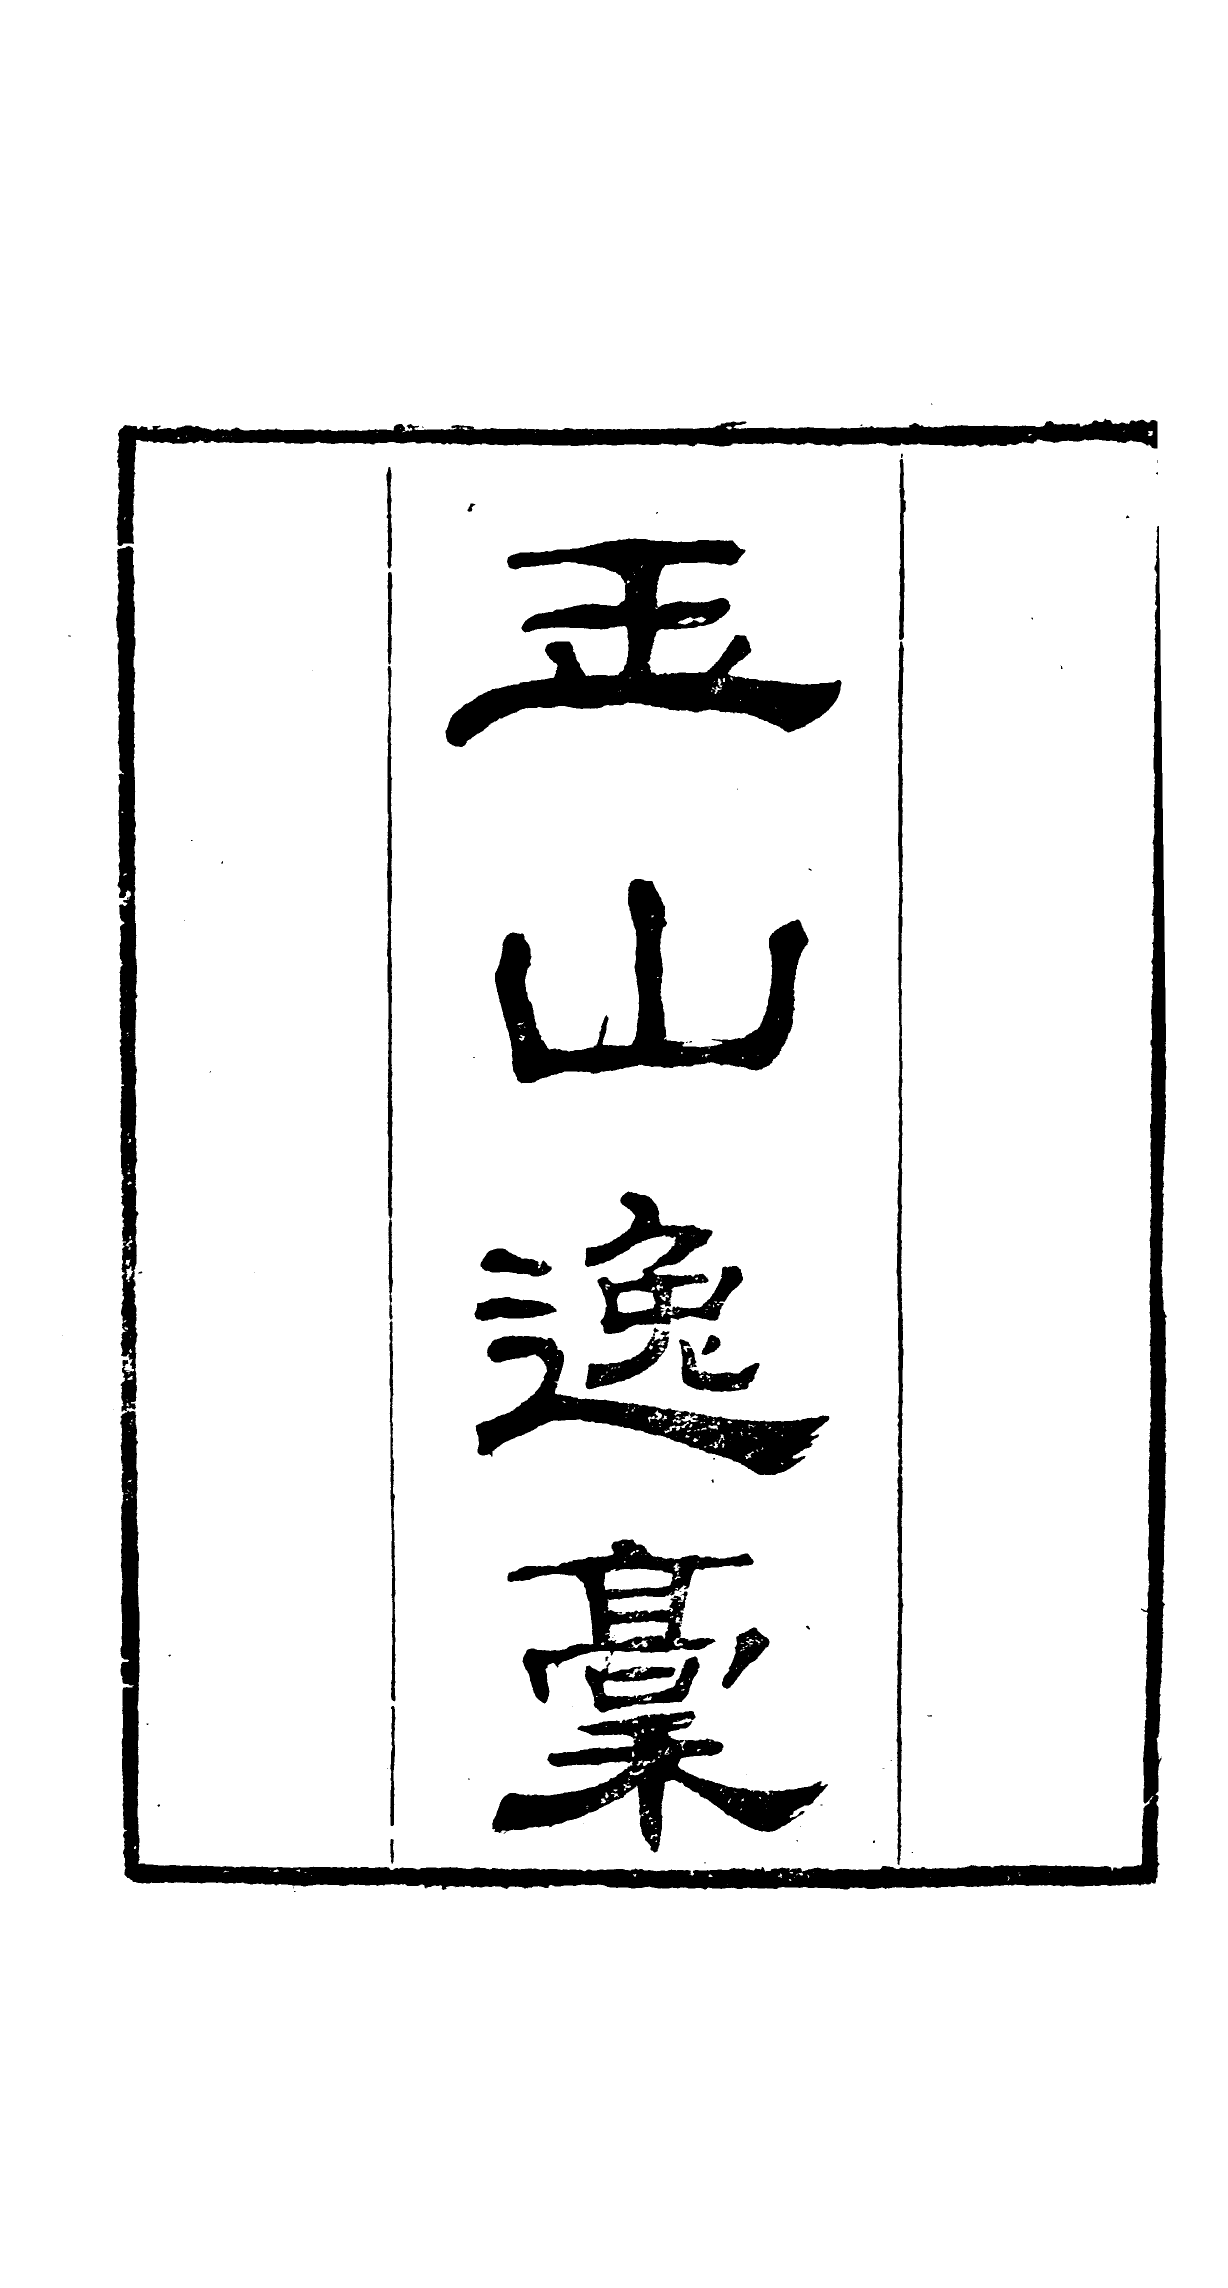 玉山逸稾